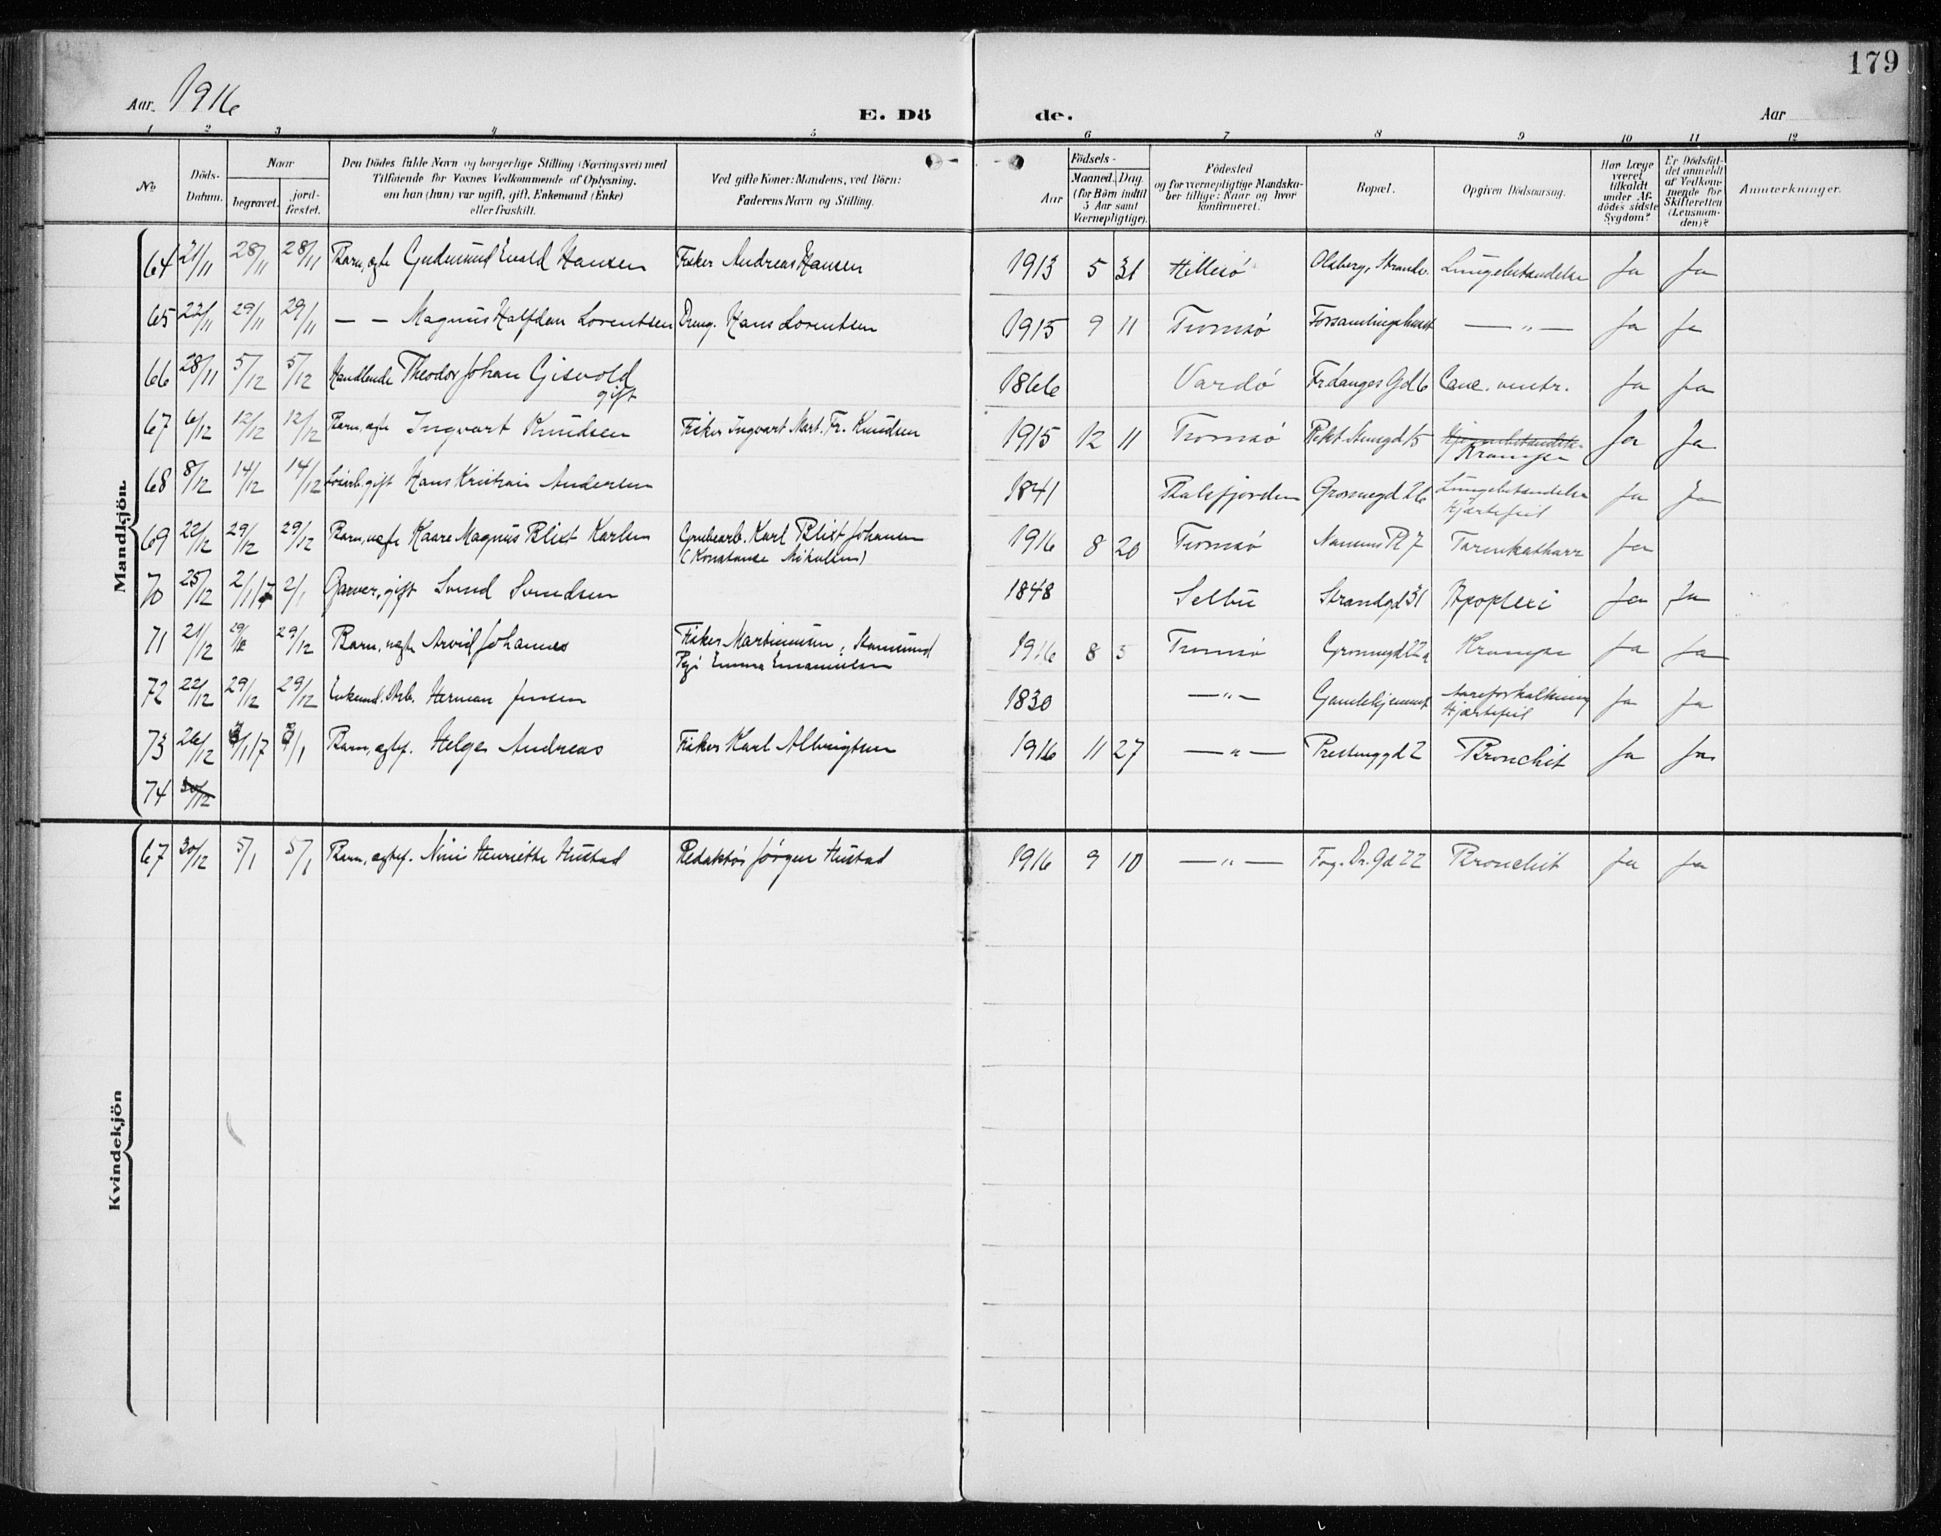 179
Aar 1916
E. Dö de.
Aar
1 2 3 4 5 6 7 8 9 10 11 12
No
Döds-Datum.
Naar
begravet.
jord-fæstet.
Den Dödes fulde Navn og borgerlige Stilling (Næringsvei) med
Tilföiende for Voxnes Vedkommende af Oplysning,
om han (hun) var ugift, gift, Enkemand (Enke)
eller fraskilt.
Ved gifte Koner: Mandens, ved Börn:
Faderens Navn og Stilling.
Födsels-
Aar
Maaned. Dag.
(for Börn indtil
5 Aar samt
Værnepligtige).
Födested
og for værnepligtige Mandska-
ber tillige: Naar og hvor
konfirmeret.
Bopæl.
Opgiven Dödsaarsag.
Har Læge
været
tilkaldt
under Af-
dödes sidste
Sygdom?
Er Dödsfal-
det anmeldt
af Vedkom-
mende for
Skifteretten
(Lensman-
den)?
Anmærkninger.
Mandkjön.
64 21/11 28/11 28/11 Barn, ægte Gudmund Evald Hansen Fisker Andreas Hansen 1913 5 31 Hillesö Olsberg, Lungebetændelse Ja Ja
65 22/11 29/11 29/11 — — Magnus Halfdan Lorentsen Hans Lorentsen 1915 9 11 Tromsö Forsamlingshuset — " — Ja Ja
66 28/11 5/12 5/12 Handlende Theodor Johan Gisvold gift 1866 Vardö Fr. Langes Gd 6 Canc. ventr. Ja Ja
67 6/12 12/12 12/12 Barn, ægte Ingvart Knudsen Fisker Ingvart Mart. Fr. Knudsen 1915 12 11 Tromsö Rekt. Stengd 15 Krampe Ja Ja
68 8/12 14/12 14/12 gift Hans Kristian Andersen 1841 Balsfjorden Grönnegd 26 Lungebetændelse Hjertefeil Ja Ja
69 22/12 29/12 29/12 Barn, uægte Kaare Magnus Blixt Karlsen Grubearb. Karl Blixt Johansen
(Konstanse Mikalsen) 1916 8 20 Tromsö Nansens Pl 7 Tarmkatharr Ja
70 25/12 2/1 17 2/1 Garver, gift Svend Svendsen 1848 Selbu Strandgd 31 Apoplexi Ja Ja
71 21/12 29/12 29/12 Barn, uægte Arvid Johannes Fisker Martinussen, Stamsund
Pige Emma Emanuelsen 1916 8 5 Tromsö Grönnegd 22a Krampe Ja Ja
72 22/12 29/12 29/12 Enkemd. Arb. Herman Jensen 1830 — " — Gamlehjemmet Aareforkalkning Hjertefeil Ja Ja
73 26/12 3/1 17 3/1 Barn, ægtef. Helge Andreas Fisker Karl Albrigtsen 1916 11 27 — " — Prestenggd 2 Bronchit Ja Ja
74 30/12
Kvindekjön
67 30/12 5/1 5/1 Barn, ægtef. Nini Henriette Hustad Redaktör Jörgen Hustad 1916 9 10 — " — Fog. Dr. Gd 22 Bronchit Ja Ja